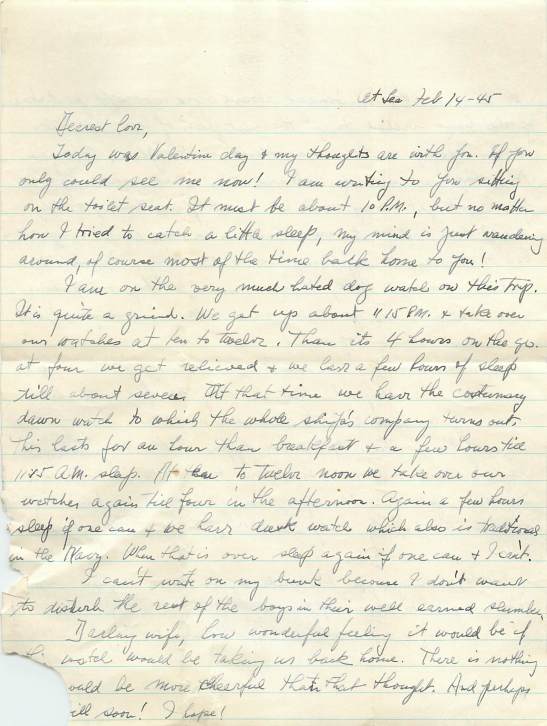 At Sea Feb 14-45
Dearest love,
Today was Valentine day & my thoughts are with you. If you
only could see me now! I am writing to you sitting
on the toilet seat. It must be about 10 P.M., but no matter
how I tried to catch a litta sleep, my mind is just wandering
around, of course most of the time back home to you!
I am on the very much hated dog watch on this trip.
It is quite a grind. We get up about 11:15 PM. & take over
our watches at ten to twelve. Than its 4 hours on the go.
at four we get relieved & we have a few hours of sleep
till about seven. At that time we have the costumary
dawn watch to which the whole ship's company turns out.
This lasts for an hour than breakfast & a few hours till
11:25 A.M. sleep. At ten to twelve noon we take over our
watches again till four in the afternoon. Again a few hours
sleep if one can & we have dusk watch which also is traditional
in the Navy. When that is over sleep again if one can & I can't.
I can't write on my bunk because I don't want
to disturb the rest of the boys in their well earned slumber.
Darling wife, how wonderful feeling it would be if
watch would be taking us back home. There is nothing
would be more cheerful than that thought. And perhaps
will soon! I hope!